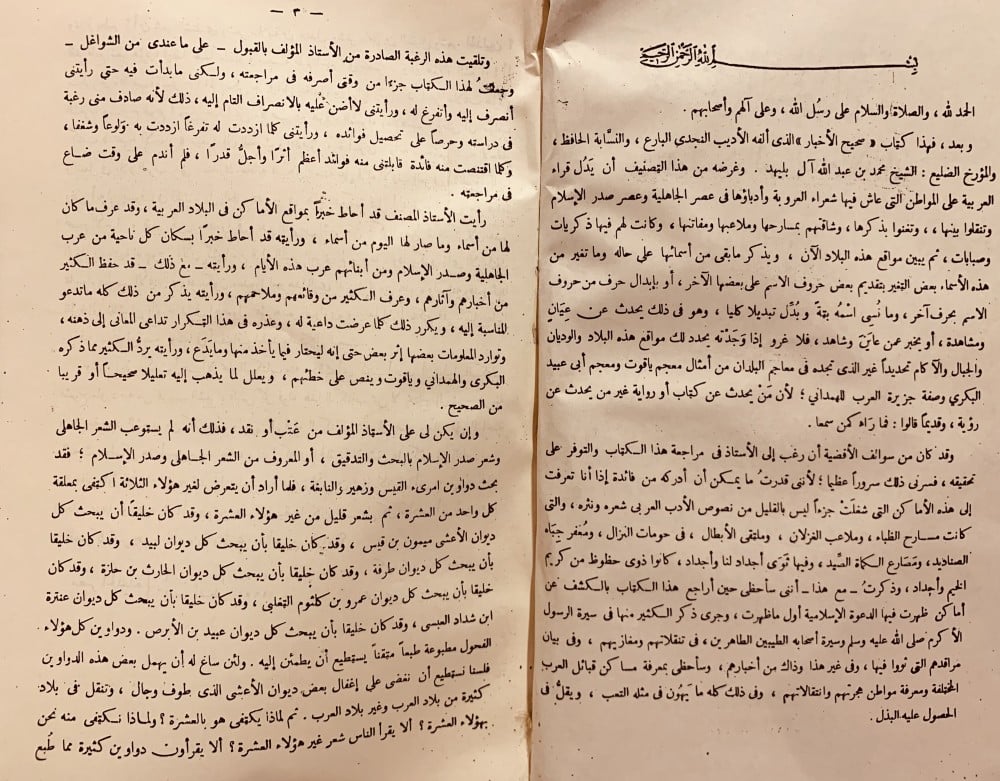 بسم الله الرحمن الرحيم
الحمد لله ، والصلاة والسلام على رسُل الله ، وعلى آلهم وأصحابهم .
وبعد ، فهذا كتاب « صحيح الأخبار » الذى ألفه الأديب النجدى البارع ، والنسَّابة الحافظ ،
والمؤرخ الضليع : الشيخ محمد بن عبد الله آل بليهد . وغرضه من هذا التصنيف أن يَدُل قراء
العربية على المواطن التى عاش فيها شعراء العروبة وأدباؤها فى عصر الجاهلية وعصر صدر الإسلام
وتنقلوا بينها ، ، وتغنوا بذكرها ، وشاقتهم بمسارحها وملاعبها ومفاتنها ، وكانت لهم فيها ذكريات
وصبابات ، ثم يبين مواقع هذه البلاد الآن ، ويذكر مابقى من أسمائها على حاله وما تغير من
هذه الأسماء بعض التغير بتقديم بعض حروف الاسم على بعضها الآخر ، أو بإبدال حرف من حروف
الاسم بحرف آخر ، وما نُسِى اسْمُه بتةً وبُدِّل تبديلا كليا ، وهو فى ذلك يحدث عن عِيَانٍ
ومشاهدة ، أو يخبر عمن عايَنَ وشاهد ، فلا غرو إذا وَجَدْتَه يحدد لك مواقع هذه البلاد والوديان
والجبال والآكام تحديداً غير الذى تجده فى معاجم البلدان من أمثال معجم ياقوت ومعجم أبى عبيد
البكري وصفة جزيرة العرب للهمدانى ؛ لأن مَنْ يحدث عن كتاب أو رواية غير من يحدث عن
رؤية ، وقديماً قالوا : فما رَاءٍ كمن سمعا .
وقد كان من سوالف الأقضية أن رغب إلى الأستاذ فى مراجعة هذا الكتاب والتوفر على
تحقيقه ، فسرنى ذلك سروراً عظيما ؛ لأننى قدرتُ ما يمكن أن أدركه من فائدة إذا أنا تعرفت
إلى هذه الأماكن التى شغلَتْ جزءاً ليس بالقليل من نصوص الأدب العربى شعره ونثره ، والتى
كانت مسارح الظباء ، وملاعب الغزلان ، وملتقى الأبطال ، فى حومات النزال ، ومُعَفر جِبَاه
الصناديد ، ومَصَارع الكماة الصِّيد ، وفيها ثَوَى أجداد لنا وأجداد ، كانوا ذوى حظوظ من كريم
الخيم وأجداد ، وذكرتُ ــ مع هذا ــ أننى سأحظى حين أراجع هذا الكتاب بالكشف عن
أماكن ظهرت فيها الدعوة الإسلامية أول ماظهرت ، وجرى ذكر الكثير منها فى سيرة الرسول
الأكرم صلى الله عليه وسلم وسيرة أصحابه الطيبين الطاهرين ، فى تنقلاتهم ومغازيهم ، وفى بيان
مراقدهم التى ثووا فيها ، وفى غير هذا وذاك من أخبارهم ، وسأحظى بمعرفة مساكن قبائل العرب
المختلفة ومعرفة مواطن هجرتهم وانتقالاتهم ، وفى ذلك كله ما يَهُون فى مثله التعب ، ويقلُّ فى
الحصول عليه البذل .
— ٣ —
وتلقيت هذه الرغبة الصادرة من الأستاذ المؤلف بالقبول ــ على ما عندى من الشواغل ــ
وجعلتُ لهذا الكتاب جزءًا من وقتى أصرفه فى مراجعته ، ولكنى مابدأت فيه حتى رأيتنى
أنصرف إليه وأتفرغ له ، ورأيتنى لا أضن عليه بالانصراف التام إليه ، ذلك لأنه صادف منى رغبة
فى دراسته وحرصاً على تحصيل فوائده ، ورأيتنى كلما ازددت له تفرغاً ازددت به وَلوعاً وشغفا ،
وكلما اقتنصت منه فائدة قابلتنى منه فوائد أعظم أثرًا وأجلُّ قدرا ، فلم أندم على وقت ضاع
فى مراجعته .
رأيت الأستاذ المصنف قد أحاط خبرًا بمواقع الأماكن فى البلاد العربية ، وقد عرف ما كان
لها من أسماء وما صار لها اليوم من أسماء ، ورأيته قد أحاط خبرًا بسكان كل ناحية من عرب
الجاهلية وصدر الإسلام ومن أبنائهم عرب هذه الأيام ، ورأيته ــ مع ذلك ــ قد حفظ الكثير
من أخبارهم وآثارهم ، وعرف الكثير من وقائعهم وملاحمهم ، ورأيته يذكر من ذلك كله ماتدعو
المناسبة إليه ، ويكرر ذلك كلما عرضت داعية له ، وعذره فى هذا التكرار تداعى المعانى إلى ذهنه ،
وتوارد المعلومات بعضها إثر بعض حتى إنه ليحتار فيما يأخذ منها وما يَدَع ، ورأيته يردُّ الكثير مما ذكره
البكرى والهمدانى وياقوت وينص على خطئهم ، ويعلل لما يذهب إليه تعليلا صحيحاً أو قريبا
من الصحيح .
وإن يكن لى على الأستاذ المؤلف من عَتْب أو نقد ، فذلك أنه لم يستوعب الشعر الجاهلى
وشعر صدر الإسلام بالبحث والتدقيق ، أو المعروف من الشعر الجاهلى وصدر الإسلام ؛ فقد
بحث دواوين امرىء القيس وزهير والنابغة ، فلما أراد أن يتعرض لغير هؤلاء الثلاثة اكتفى بمعلقة
كل واحد من العشرة ، ثم بشعر قليل من غير هؤلاء العشرة ، وقد كان خليقًا أن يبحث كل
ديوان الأعشى ميمون بن قيس ، وقد كان خليقا بأن يبحث كل ديوان لبيد ، وقد كان خليقا
بأن يبحث كل ديوان طرفة ، وقد كان خليقا بأن يبحث كل ديوان الحارث بن حلزة ، وقد كان
خليقا بأن يبحث كل ديوان عمرو بن كلثوم التغلبى ، وقد كان خليقا بأن يبحث كل ديوان عنترة
ابن شداد العبسى ، وقد كان خليقا بأن يبحث كل ديوان عبيد بن الأبرص . ودواوين كل هؤلاء
الفحول مطبوعة طبعاً متقناً يستطيع أن يطمئن إليه . ولئن ساغ له أن يهمل بعض هذه الدواوين
فلسنا نستطيع أن نغضى على إغفال بعض ديوان الأعشى الذى طوف وجال ، وتنقل فى بلاد
كثيرة من بلاد العرب وغير بلاد العرب . ثم لماذا يكتفى هو بالعشرة ؟ ولماذا نكتفى منه نحن
بهؤلاء العشرة ؟ ألا يقرأ الناس شعر غير هؤلاء العشرة ؟ ألا يقرأون دواوين كثيرة مما طُبع